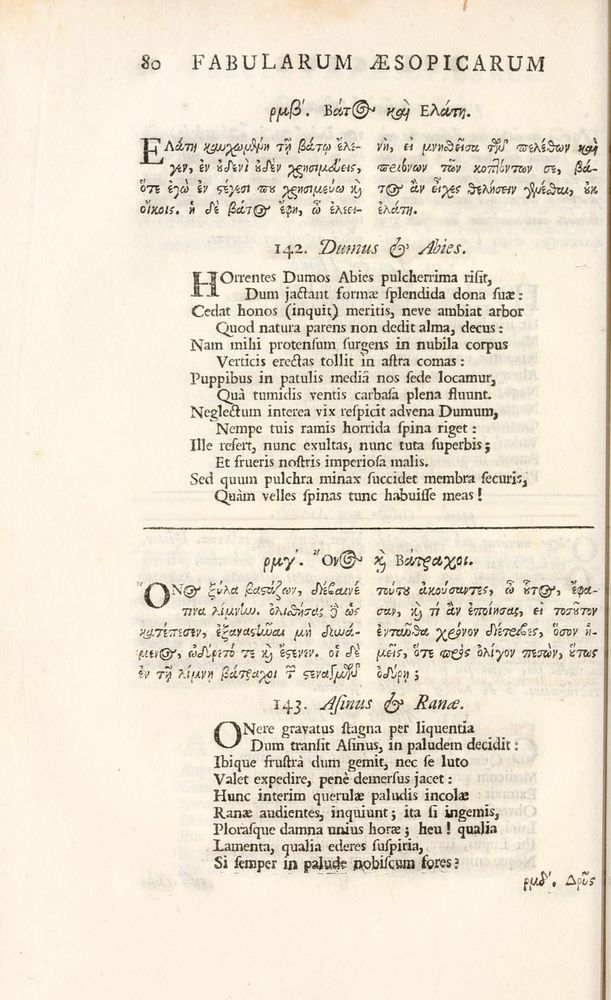 80 FABULARUM ÆSOPICARUM
ρμβʹ. Βάτος καὶ Ελάτη.
ΕΛάτη καυχωμένη τῇ βάτῳ ἔλε-
γεν, ἐν οὐδενὶ οὐδὲν χρησιμεύεις,
ὅτε ἐγὼ ἐν στέγεσί που χρησιμεύω κὶ
οἴκοις. ἡ δὲ βάτος ἔφη, ὦ ἐλεει-
νὴ, εἰ μνηθεῖσα τῶν πελέκων καὶ
πριόνων τῶν κοπτόντων σε, βά-
τος ἂν εἶχες θελήσειν γενέσθαι, ἐκ
ἐλάτη.
142. Dumus & Abies.
HOrrentes Dumos Abies pulcherrima riſit,
Dum jactant formæ ſplendida dona ſuæ:
Cedat honos (inquit) meritis, neve ambiat arbor
Quod natura parens non dedit alma, decus:
Nam mihi protenſum ſurgens in nubila corpus
Verticis erectas tollit in aſtra comas:
Puppibus in patulis mediâ nos ſede locamur,
Quà tumidis ventis carbaſa plena fluunt.
Neglectum interea vix reſpicit advena Dumum,
Nempe tuis ramis horrida ſpina riget:
Ille refert, nunc exultas, nunc tuta ſuperbis;
Et frueris noſtris imperioſa malis.
Sed quum pulchra minax ſuccidet membra ſecuris,
Quàm velles ſpinas tunc habuiſſe meas!
ρμγʹ. Ὄνος κὶ Βάτραχοι.
ὌΝος ξύλα βαστάζων, διέβαινέ
τινα λίμνην. ὀλισθήσας δὲ ὡς
κατέπεσεν, ἐξαναστῆναι μὴ δυνά-
μενος, ὠδύρετό τε κὶ ἔστενεν. οἱ δὲ
ἐν τῇ λίμνῃ βάτραχοι τῶν στεναγμῶν
τούτου ἀκούσαντες, ὦ οὗτος, ἔφα-
σαν, κὶ τί ἂν ἐποίησας, εἰ τοσοῦτον
ἐνταῦθα χρόνον διέτριβες, ὅσον ἡ-
μεῖς, ὅτε πρὸς ὀλίγον πεσὼν, οὕτως
ὀδύρῃ;
143. Aſinus & Ranæ.
ONere gravatus ſtagna per liquentia
Dum tranſit Aſinus, in paludem decidit:
Ibique fruſtrà dum gemit, nec ſe luto
Valet expedire, penè demerſus jacet:
Hunc interim querulæ paludis incolæ
Ranæ audientes, inquiunt; ita ſi ingemis,
Ploraſque damna unius horæ; heu! qualia
Lamenta, qualia ederes ſuſpiria,
Si ſemper in palude nobiſcum fores?
ρμδʹ. Δρῦς